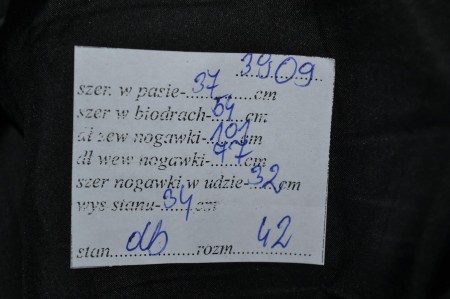 3909
szer. w pasie-.37..........cm
szer w biodrach-.54...cm
dł zew nogawki-101cm
dł wew nogawki-.77...cm
szer nogawki w udzie-.32.cm
wys stanu-.34....cm
stan....db.........rozm....42..........